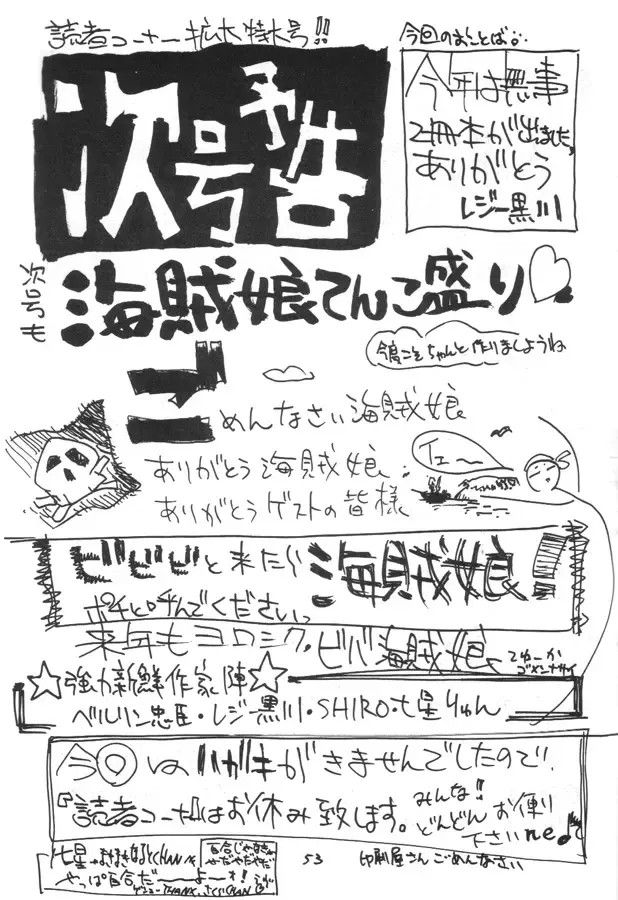 読者コーナー拡大特大号!!
今回のまことば。
今年は無事
2冊本が出ました。
ありがとう
レジー黒川
次号予告
次号も
海賊娘てんこ盛り♡
今度こそちゃんと作りましようね
ごめんなさい海賊娘
イエ〜
ありがとう海賊娘
ありがとうゲストの皆様
ビビビと来たら海賊娘!
ポチと呼んでください。
来年もヨロシク・ビバ海賊娘
てゆーか
ゴメンナサイ
☆強力新鮮作家陣☆
ベルリン忠臣・レジー黒川・SHIRO・七星りゅん
今回はハガキがきませんでしたので、
『読者コーナー』はお休み致します。
みんな!!
どんどんお便り
下さいne♪
七星
やっぱ百合だ――よ――!
53
印刷屋さんごめんなさい